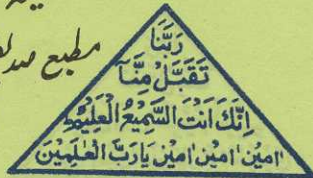 مطبع
رَبَّنَا
تَقَبَّلْ مِنَّآ
اِنَّكَ اَنْتَ السَّمِيْعُ الْعَلِيْمُ
اٰمِيْن اٰمِيْن اٰمِيْن يَا رَبَّ الْعٰلَمِيْنَ